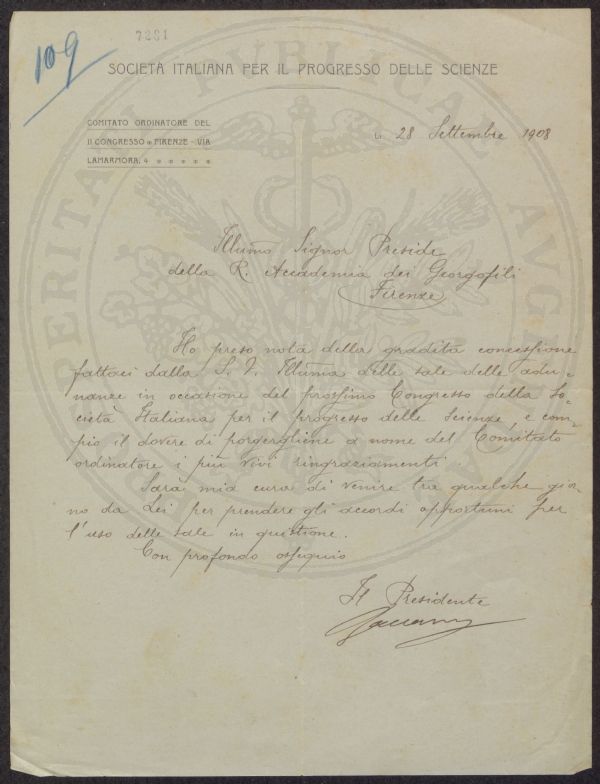 109
7281
SOCIETA ITALIANA PER IL PROGRESSO DELLE SCIENZE
COMITATO ORDINATORE DEL
II CONGRESSO FIRENZE - VIA
LAMARMORA, 4
Li 28 Settembre 1908
Illumo Signor Preside
della R. Accademia dei Georgofili
Firenze
Ho preso nota della gradita concessione
fattaci dalla S. V. Illuma delle sale delle adu-
nanze in occasione del prossimo Congresso della So-
cietà Italiana per il progresso delle Scienze, e com-
pio il dovere di porgergliene a nome del Comitato
ordinatore i più vivi ringraziamenti
Sarà mia cura di venire tra qualche gior-
no da Lei per prendere gli accordi opportuni per
l'uso delle sale in questione.
Con profondo ossequio
Il Presidente